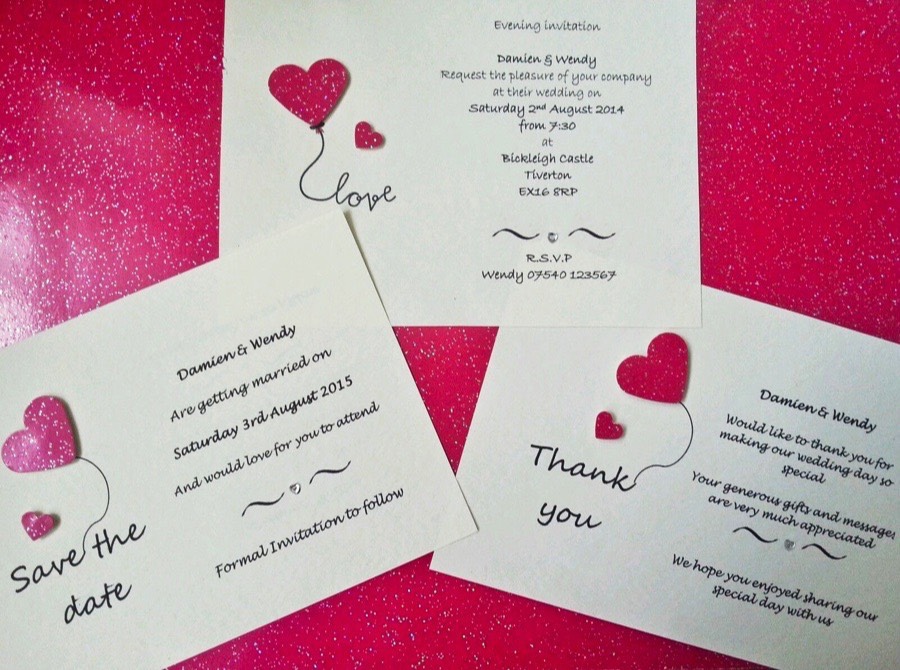 Evening invitation
Damien & Wendy
Request the pleasure of your company
at their wedding on
Saturday 2nd August 2014
from 7:30
at
Bickleigh Castle
Tiverton
EX16 8RP
R.S.V.P
Wendy 07540 123567
love
Damien & Wendy
Are getting married on
Saturday 3rd August 2015
And would love for you to attend
Formal Invitation to follow
Save the
date
Damien & Wendy
Would like to thank you for
making our wedding day so
special
Your generous gifts and messages
are very much appreciated
We hope you enjoyed sharing our
special day with us
Thank
you